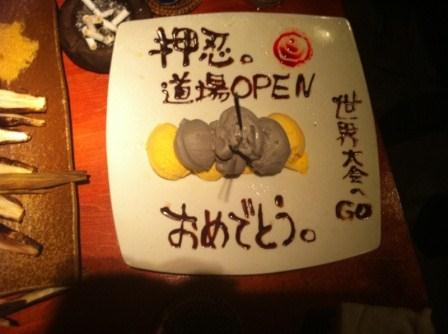 押忍。
道場OPEN
世界大会へGO
おめでとう。